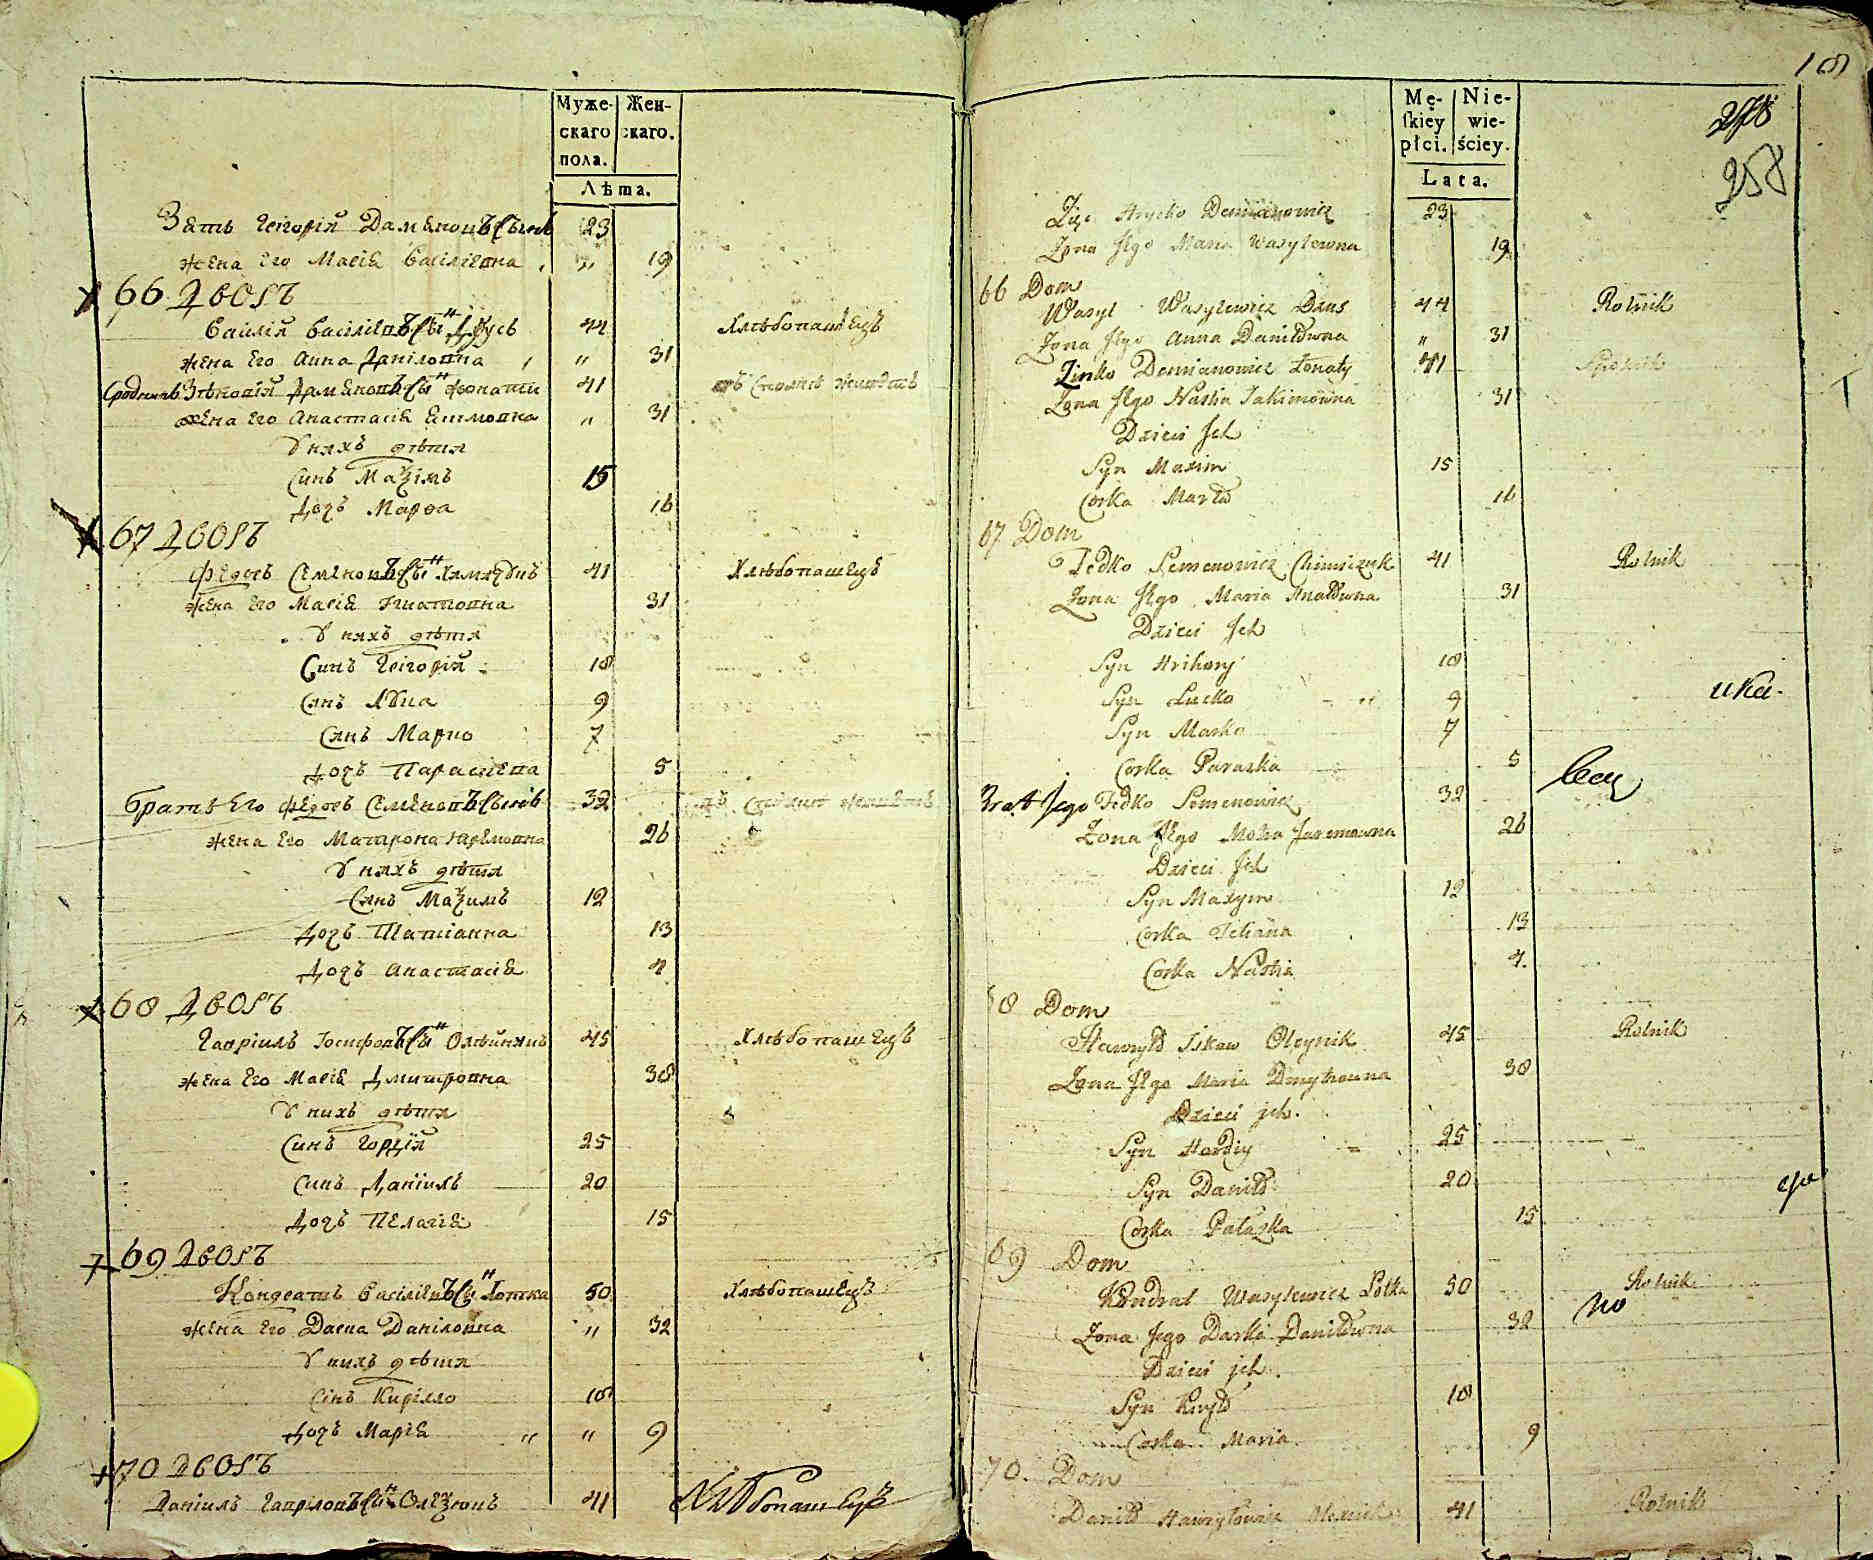 Муже-
скаго
пола.
Жен-
скаго.
Лѣта.
Зять Григорій Дамяновъ Сынъ 23
жена Его Марія Василіевна „ 19
66 Дворъ
Василій Василіевъ Сынъ Дзусь 44 Хлѣбопашецъ
жена Его Анна Даніловна „ 31
Сродникъ Зѣновій Дамяновъ Сынъ 41
жена Его Анастасія Екимовна „ 31
У нихъ дѣти
Синъ Маѯімъ 15
Дочь Марѳа 16
67 Дворъ
Ѳедоръ Семеновъ Сынъ 41 Хлѣбопашецъ
жена Его Марія Игнатовна 31
У нихъ дѣти
Синъ Григорій 18
Синъ Лука 9
Синъ Марко 7
Дочь Параскева 5
Братъ Его Ѳедоръ Семеновъ Сынъ 32
жена Его Матрона Яремовна 26
У нихъ дѣти
Синъ Маѯимъ 12
Дочь Татіанна 13
Дочь Анастасія 4
68 Дворъ
Гавріилъ Іосифовъ Сынъ Олѣйникъ 45 Хлѣбопашецъ
жена Его Марія Дмитровна 38
У нихъ дѣти
Синъ Гордій 25
Синъ Даніилъ 20
Дочь Пелагія 15
69 Дворъ
Кондратъ Василіевъ Сынъ Лотка 50 Хлѣбопашецъ
жена Его Дарка Даніловна „ 32
У нихъ дѣти
Синъ Кирілло 18
Дочь Марія „ „ 9
70 Дворъ
Даніилъ Гавріловъ Сынъ Олеѯюкъ 41 Хлѣбопашецъ
18
258
Mę-
skiey
płci.
Nie-
wie-
ściey.
Lata.
Zięć Hrycko Demianowicz 23
Zona Jego Maria Wasylewna 19
66 Dom
Wasyl Wasylewicz Dzus 44 Rolnik
Zona Jego Anna Daniłowna „ 31
Zinko Demianowicz Łonaty 41
Zona Jego Nastia Jakimowna 31
Dzieci Ich
Syn Maxim 15
Corka Marta 16
67 Dom
Fedko Semenowicz 41 Rolnik
Zona Jego Maria Hnatowna 31
Dzieci Ich
Syn Hrihory 18
Syn Łucko 9
Syn Marko 7
Corka Paraska 5
Brat Jego Fedko Semenowicz 32
Zona Jego Motra Jaremowna 26
Dzieci Ich
Syn Maxym 12
Corka Tetiana 13
Corka Nastia 4.
68 Dom
Hawryło Iskow Oleynik 45 Rolnik
Zona Jego Maria Dmytrowna 38
Dzieci ich.
Syn Hordiy 25
Syn Daniło 20
Corka Pałazka 15
69 Dom
Kondrat Wasylewicz Łotka 50 Rolnik
Zona Jego Darka Daniłowna 32
Dzieci ich.
Syn Kiryło 18
Corka Maria 9
70. Dom
Daniło Hawryłowicz 41 Rolnik